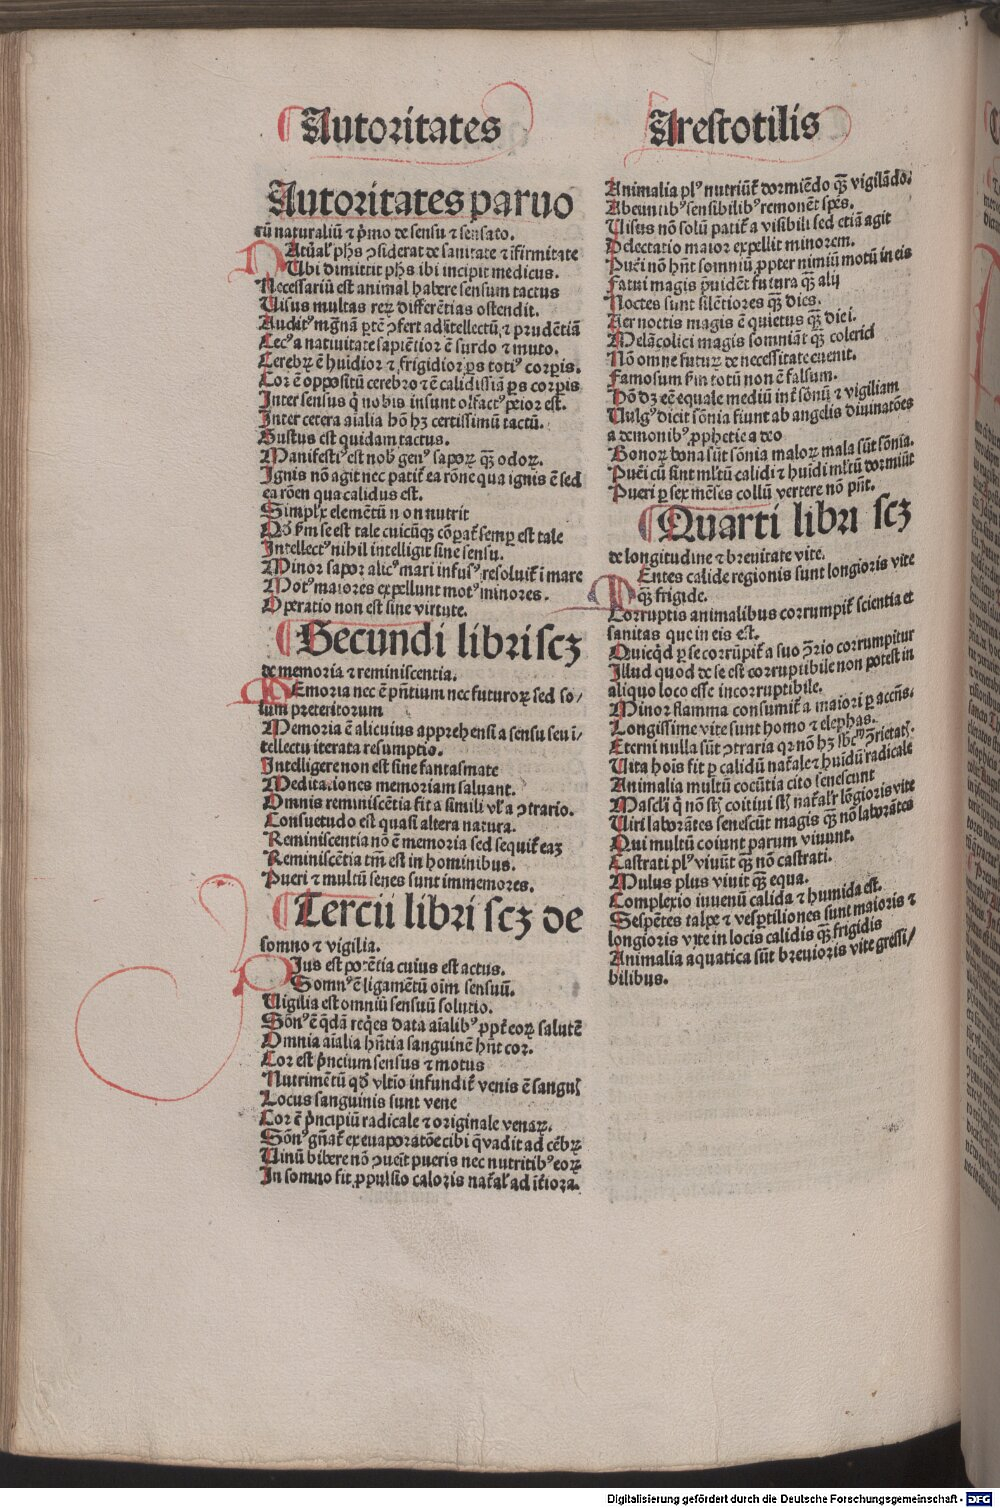 Autoritates
Arestotilis
Autoritates paruo
rū naturaliū ⁊ p̄mo de sensu ⁊ sensato.
NAtural' ph's ꝯsiderat de sanitate ⁊ īfirmitate
Ubi dimittit ph's ibi incipit medicus.
Necessariū est animal habere sensum tactus
Uisus multas reꝝ differētias ostendit.
Audit⁹ mḡnā ꝑtē ꝯfert ad ītellectū ⁊ prudētiā
Cec⁹ a natiuitate sapiētior ē surdo ⁊ muto.
Cerebꝝ ē huidior ⁊ frigidior ꝑs toti⁹ corꝑis.
Cor ē oppositū cerebro ⁊ ē calidissīa ꝑs corꝑis
Inter sensus q̇ nobis insunt olfact⁹ peior est.
Inter cetera aīalia hō hꝫ certissimū tactū.
Gustus est quidam tactus.
Manifesti⁹ est nob̄ gen⁹ sapoꝝ qꝫ̄ odoꝝ.
Ignis nō agit nec patit᷑ ea rōne qua ignis ē sed
ea rōen qua calidus est.
Simplx elemētū n on nutrit
Qd̓ ẜm se est tale cuicūqꝫ cōꝑat᷑ semꝑ est tale
Intellect⁹ nihil intelligit sine sensu.
Minor sapor alic⁹ mari infus⁹ resoluit᷑ ī mare
Mot⁹ maiores expellunt mot⁹ minores.
Operatio non est sine virtute.
Secundi libri scꝫ
de memoria ⁊ reminiscentia.
MEmoria nec ē p̄ntium nec futuroꝝ sed so/
lum preteritorum
Memoria ē alicuius apprehensi a sensu seu ī/
tellectu iterata resumptio.
Intelligere non est sine fantasmate
Meditaciones memoriam saluant.
Omnis reminiscētia fit a simili vl' a ꝯtrario.
Consuetudo est quasi altera natura.
Reminiscentia nō ē memoria sed sequit᷑ eaꝫ
Reminiscētia tm̄ est in hominibus.
Pueri ⁊ multū senes sunt immemores.
Tercii libri scꝫ de
somno ⁊ vigilia.
CUius est potētia cuius est actus.
Somn⁹ ē ligamētū oīm sensuū.
Uigilia est omniū sensuū solutio.
Sōn⁹ ē q̇dā reqͥes data aīalib⁹ ꝓpt᷑ eoꝝ salutē
Omnia aīalia hn̄tia sanguinē hn̄t cor.
Cor est p̄ncium sensus ⁊ motus
Nutrimētū qd̓ vltīo infundit᷑ venis ē sanguis
Locus sanguinis sunt vene
Cor ē p̄ncipiū radicale ⁊ originale venaꝝ.
Sōn⁹ gn̄at᷑ ex euaporatōe cibi q̇ vadit ad cēbꝝ
Uinū bibere nō ꝯueīt pueris nec nutritib⁹ eoꝝ
In somno fit ꝓpulsio caloris nat᷑al' ad īt᷑iora.
Animalia pl⁹ nutriūt᷑ dormiēdo qꝫ̄ vigilādo.
Abeuntib⁹ sensibilib⁹ remonēt spēs.
Uisus nō solū patit᷑ a visibili sed etiā agit
Delectatio maior expellit minorem.
Pueri nō hn̄t somniū ꝓpter nimiū motū in eis
Fatui magis p̄uidēt futura qꝫ̄ alij
Noctes sunt silētiores qꝫ̄ dies.
Aer noctis magis ē quietus qꝫ̄ diei.
Melācolici magis somniāt qꝫ̄ colerici
Nō omne futuꝝ de necessitate euenit.
Famosum ẜm totū non ē falsum.
Hō dꝫ eē equale mediū int᷑ sōnū ⁊ vigiliam
Uulg⁹ dicit sōnia fiunt ab angelis diuinatōes
a demonib⁹ ꝓphetie a deo
Bonoꝝ bona sūt sōnia maloꝝ mala sūt sōnia.
Pueri cū sint ml̓tū calidi ⁊ huidi ml̓tū dormiūt
Pueri ꝑ sex mēses collū vertere nō pn̄t.
Quarti libri scꝫ
de longitudine ⁊ breuitate vite.
MEntes calide regionis sunt longioris vite
qꝫ̄ frigide.
Corruptis animalibus corrumpit᷑ scientia et
sanitas que in eis est.
Quicq̇d ꝑ se corrūpit᷑ a suo ꝯ̄rio corrumpitur
Illud quod de se est corruptibile non potest in
aliquo loco esse incorruptibile.
Minor flamma consumit᷑ a maiori ꝑ accn̄s.
Longissime vite sunt homo ⁊ elephas.
Eterni nulla sūt ꝯtraria qr nō hꝫ ꝯ̄rietatꝫ.
Uita hoīs fit ꝑ calidū nat᷑ale ⁊ huidū radicale
Animalia multū coeūtia cito senescunt
Masculi q̇ nō st̓ coitiui st̓ nat᷑al'r lōgioris vite
Uiri laborātes senescūt magis qꝫ̄ nō laborātes
Qui multū coiunt parum viuunt.
Castrati pl⁹ viuūt qꝫ̄ nō castrati.
Mulus plus viuit qꝫ̄ equa.
Complexio iuuenū calida ⁊ humida est.
Serpētes talpe ⁊ vesꝑtiliones sunt maioris ⁊
longioris vite in locis calidis qꝫ̄ frigidis
Animalia aquatica sūt breuioris vite gressi/
bilibus.
Digitalisierung gefördert durch die Deutsche Forschungsgemeinschaft - DFG